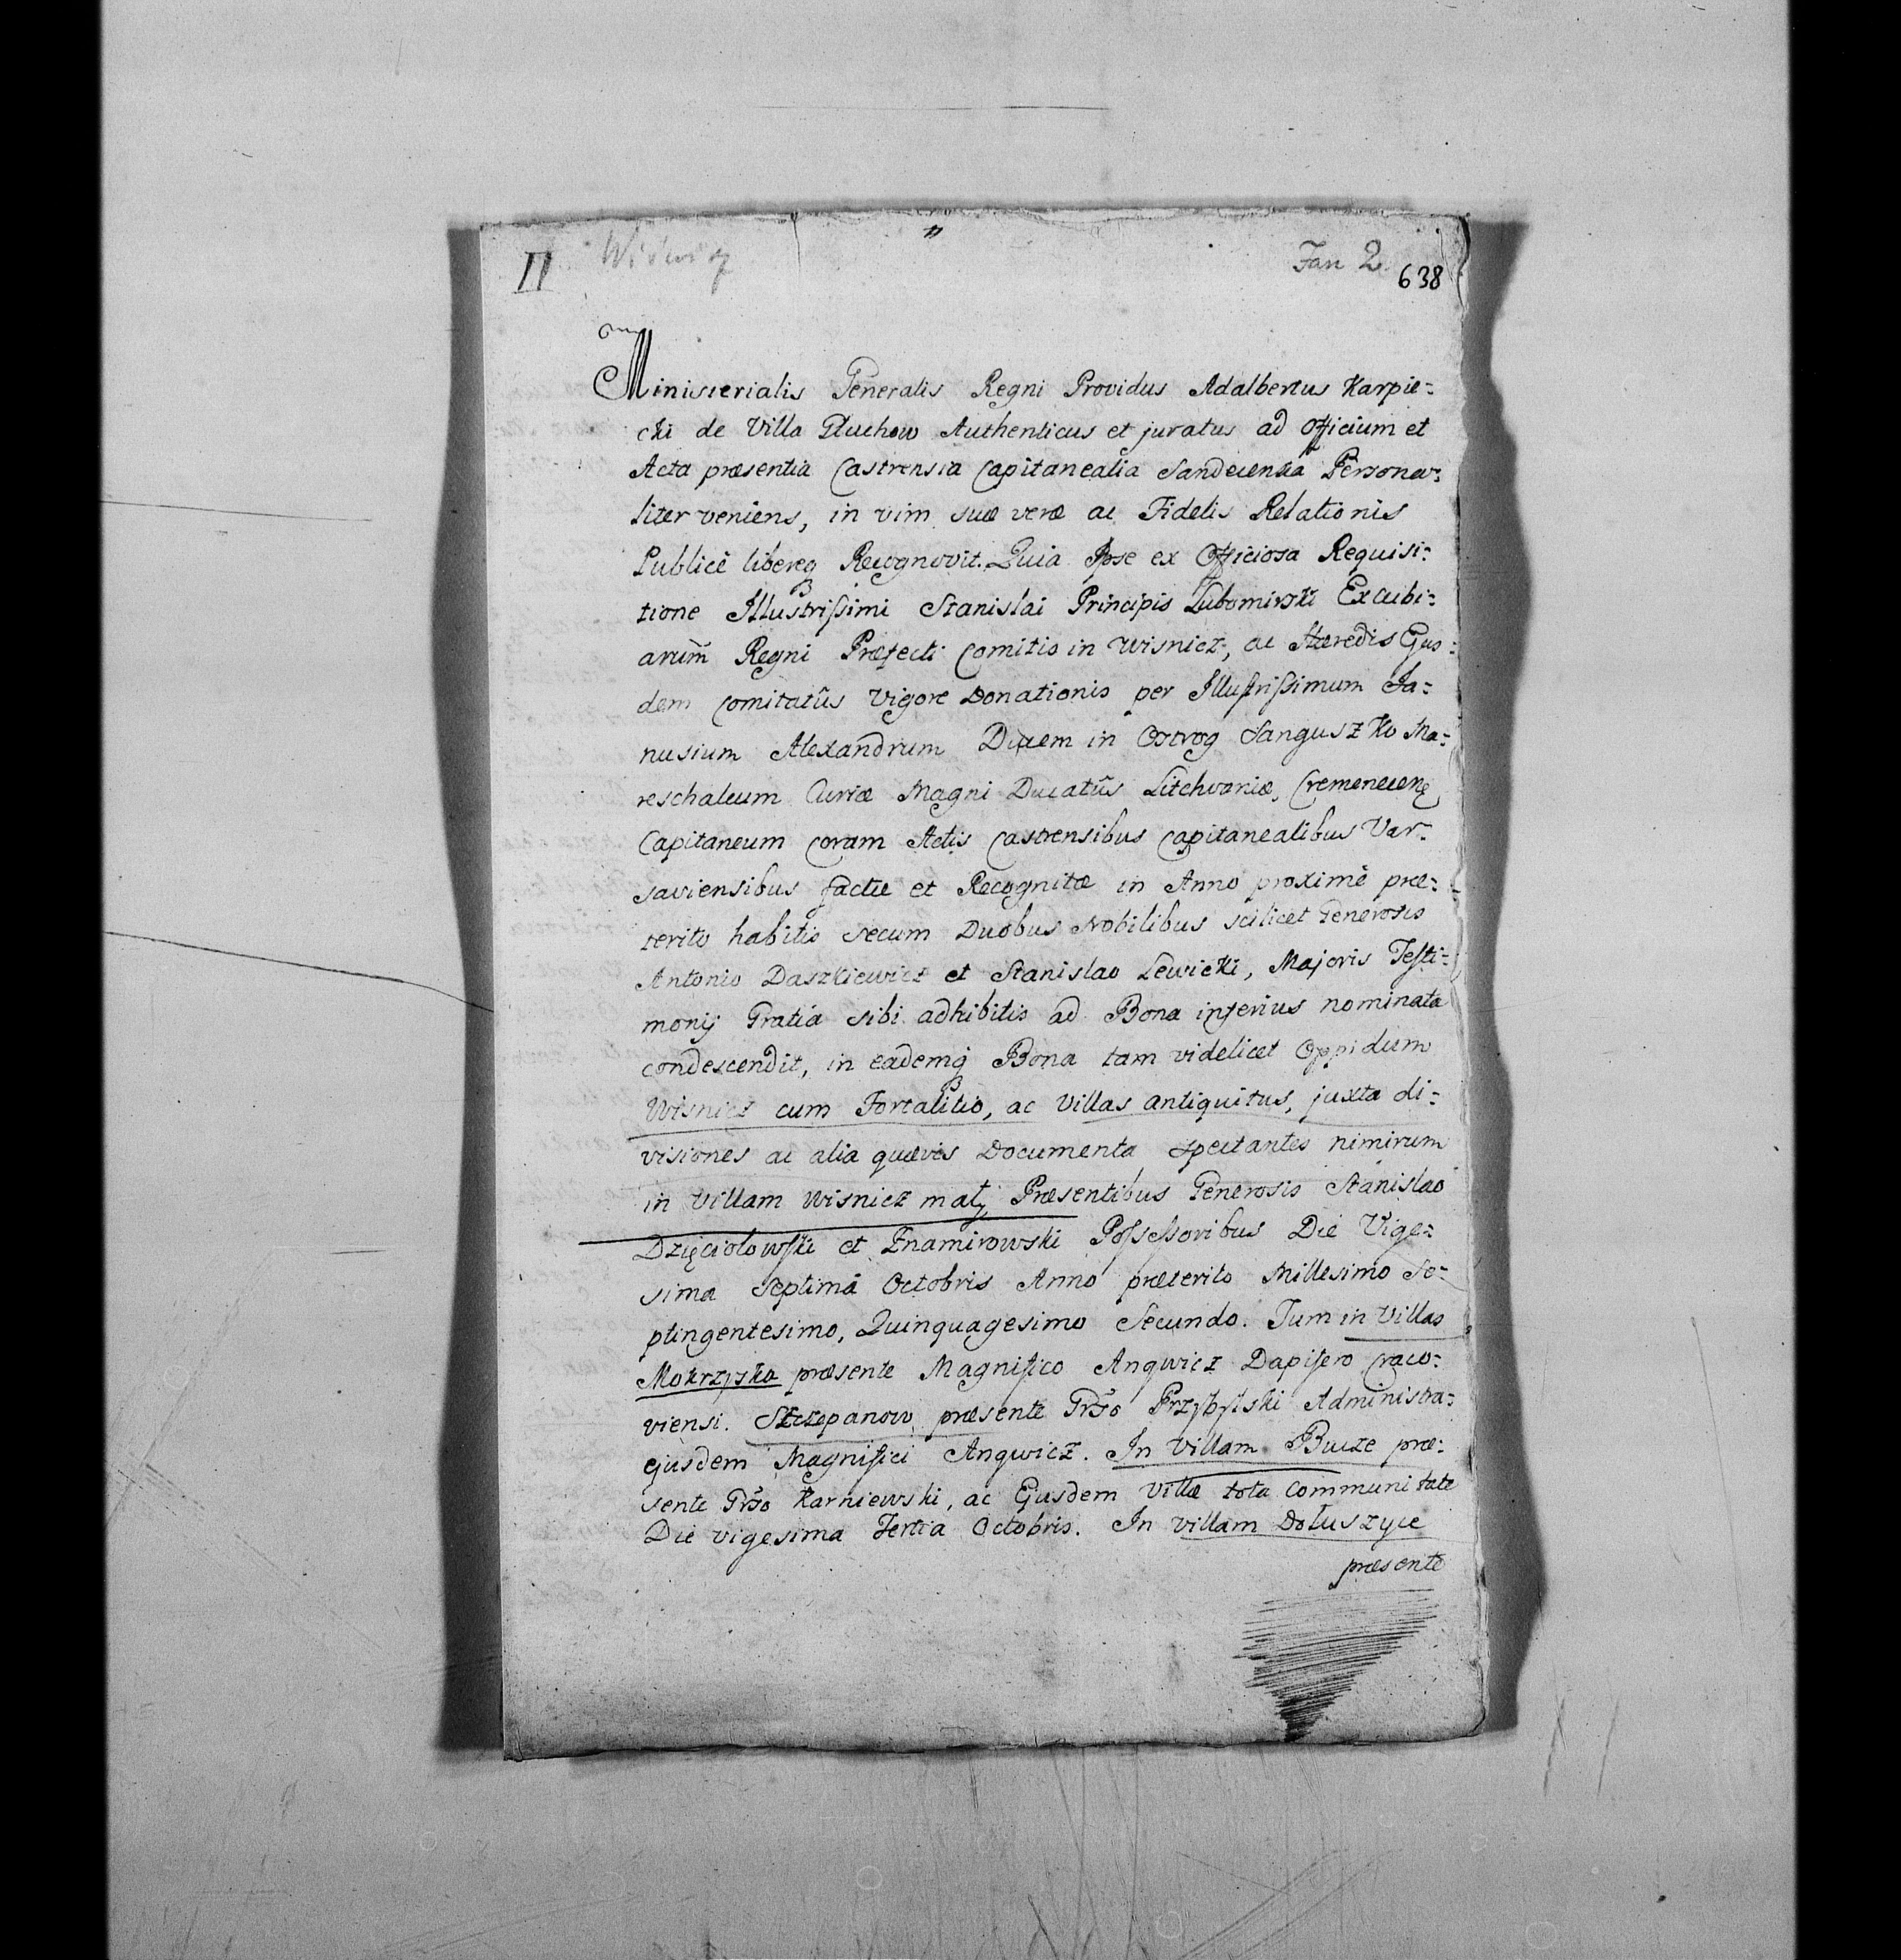 II Wisnicz Fan 2. 638
Ministerialis Generalis Regni Providus Adalbertus Karpie-
cki de Villa Gluchow Authenticus et juratus ad Officium et
Acta præsentia Castrensia Capitanealia Sandecensia Persona-
liter veniens, in vim suæ veræ ac Fidelis Relationis
Publicè libereq Recognovit. Quia Ipse ex Officiosa Requisi-
tione Illustrissimi Stanislai Principis Lubomirski Excubi-
arum Regni Præfecti Comitis in Wisnicz, ac Hæredis Ejus-
dem Comitatûs Vigore Donationis per Illustrissimum Ja-
nusium Alexandrum Ducem in Ostrog Sanguszko Ma-
reschalcum Curiæ Magni Ducatûs Litthvaniæ, Cremenecen
Capitaneum Coram Actis Castrensibus Capitanealibus Var-
saviensibus factæ et Recognitæ in Anno proximè præ-
terito habitis secum Duobus Nobilibus scilicet Generosis
Antonio Daszkiewicz et Stanislao Lewicki, Majoris Testi-
monij Gratiâ sibi adhibitis ad Bona inferius nominata
condescendit, in eademq Bona tam videlicet Oppidum
Wisnicz cum Fortalitio, ac Villas antiquitus, juxta di-
visiones ac alia quævis Documenta spectantes nimirum
in Villam Wisnicz mały Præsentibus Generosis Stanislao
Dzięciołowski et Znamirowski Possessoribus Die Vige-
sima Septimâ Octobris Anno præterito Millesimo Se-
ptingentesimo, Quinquagesimo Secundo. Tum in Villas
Mokrzyska præsente Magnifico Anqwicz Dapifero Craco-
viensi. Szczepanow præsente Grso Przybylski Administra-
ejusdem Magnifici Anqwicz. In Villam Bucze præ-
sente Grso Karniewski, ac Ejusdem Villæ tota Communitate
Die vigesima Tertia Octobris. In villam Dołuszyce
præsente